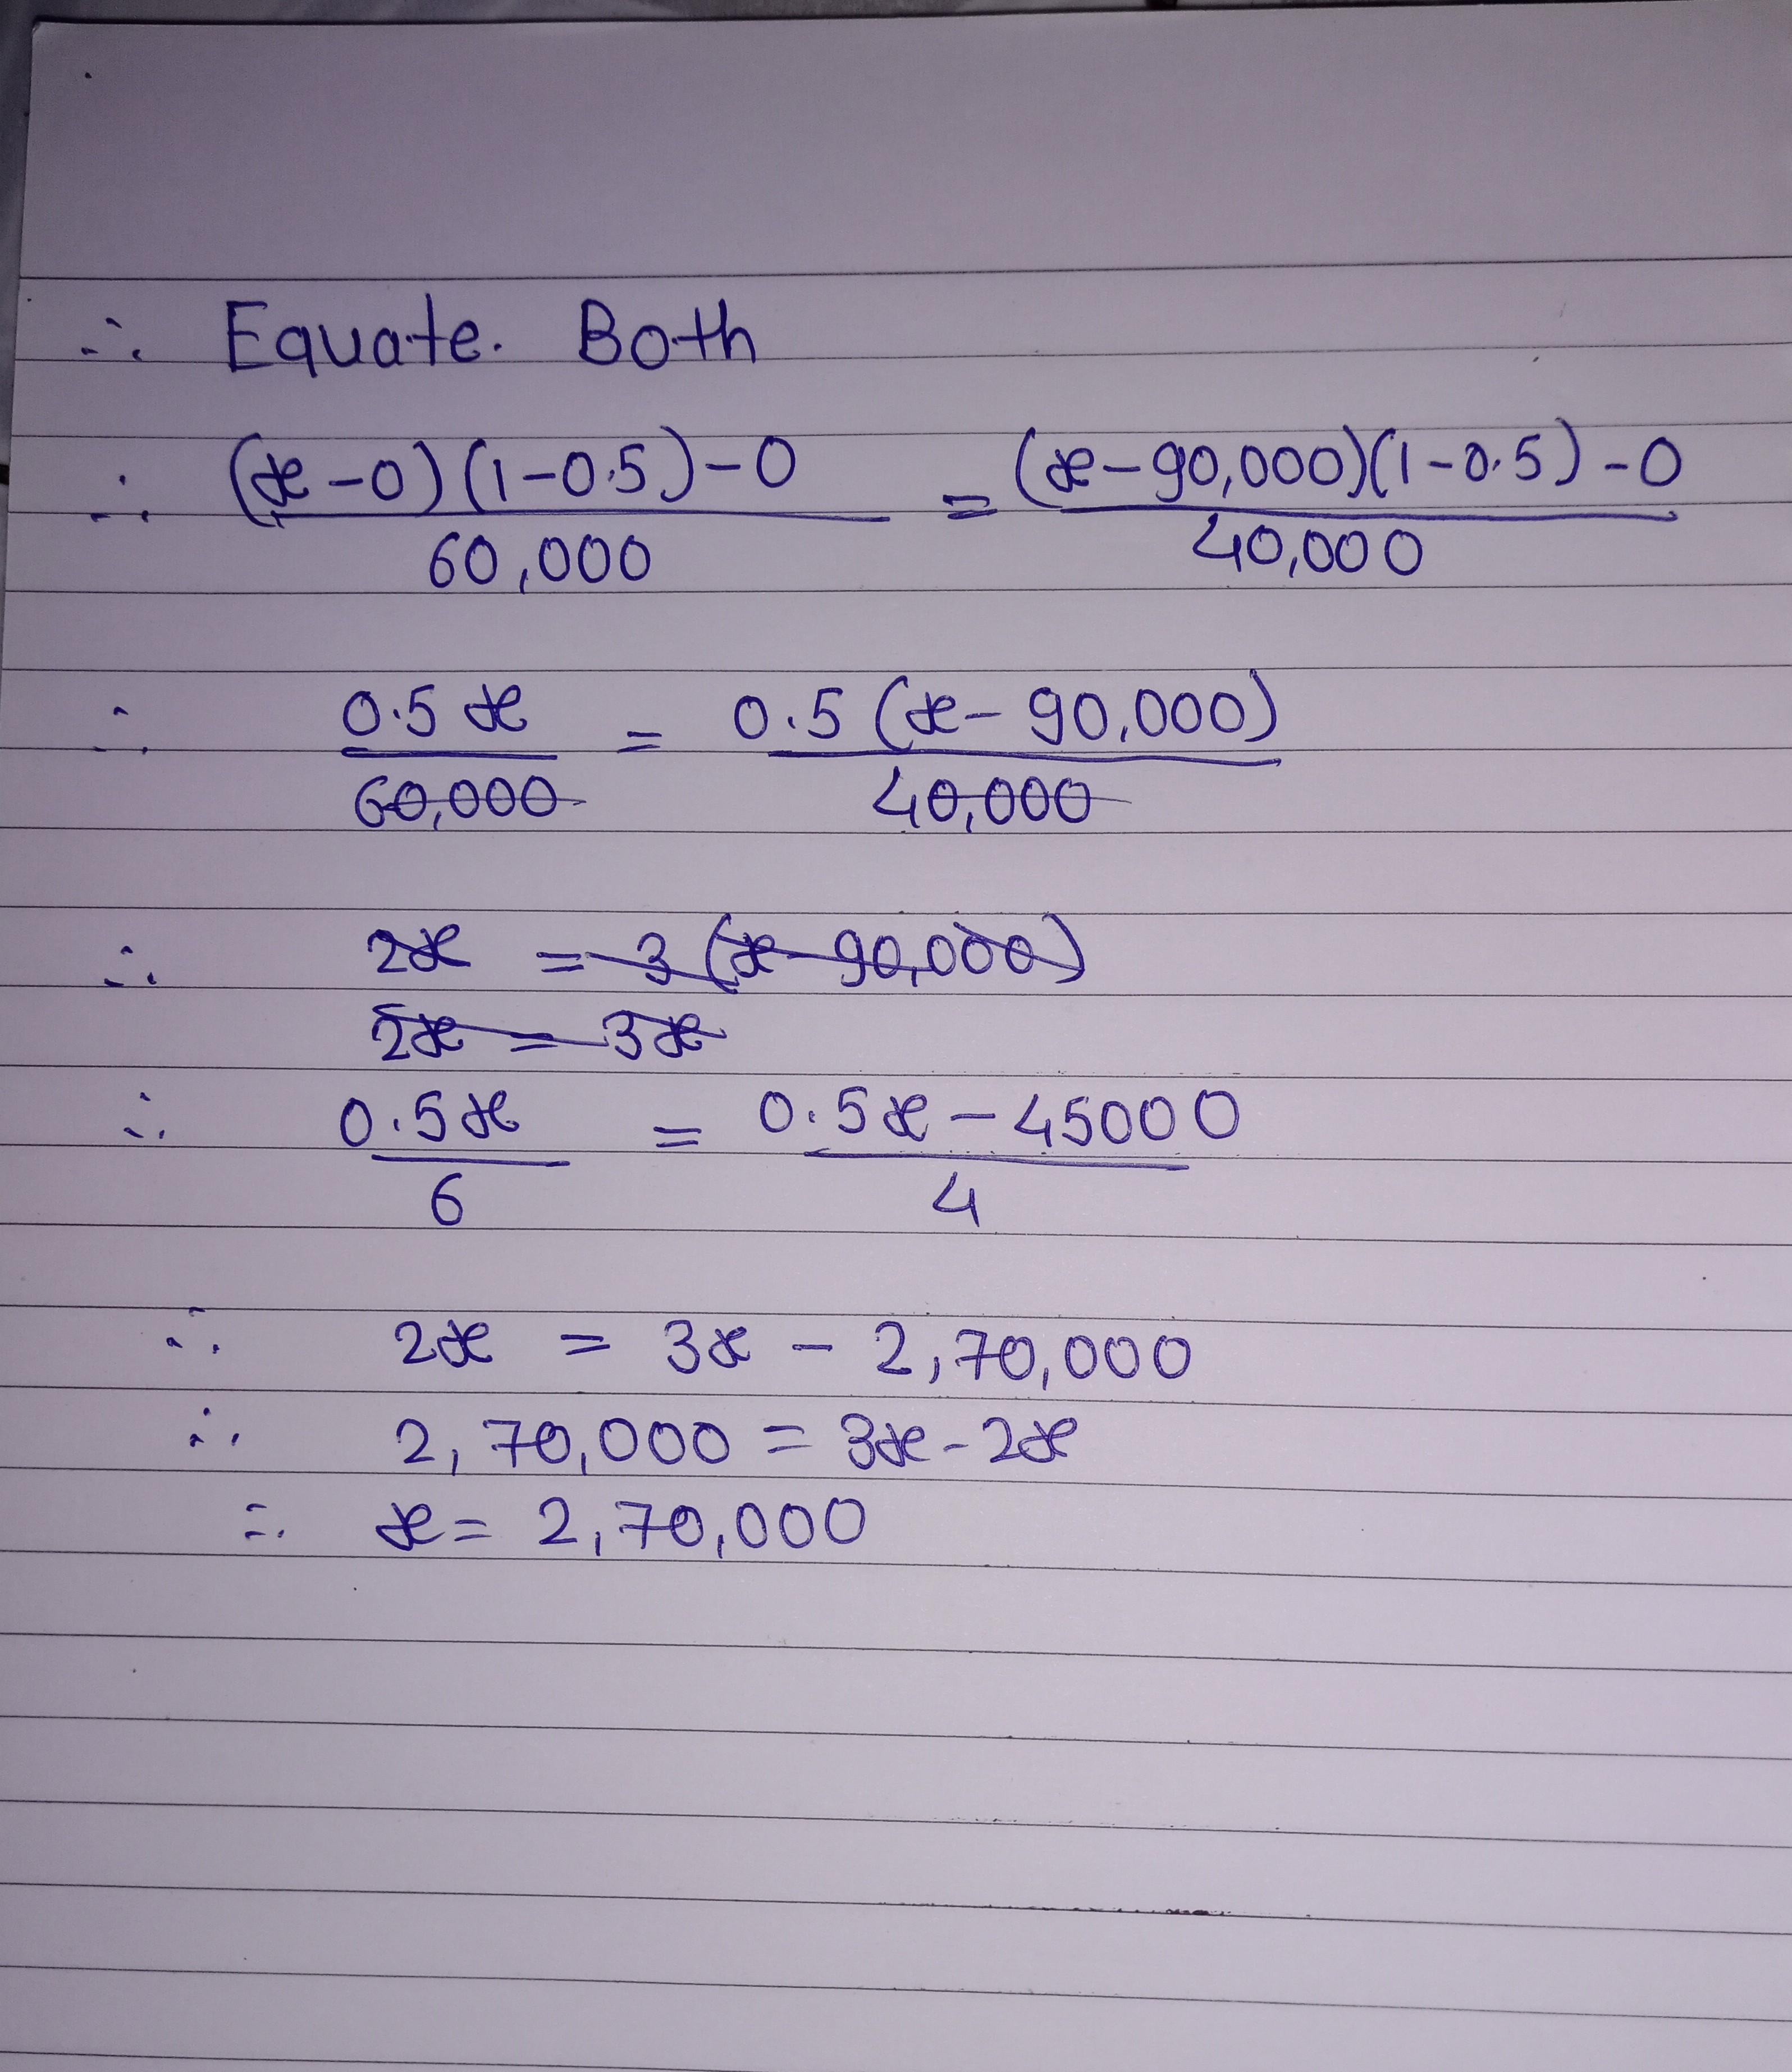 ∴ Equate. Both
∴ (x-0)(1-0.5)-0 / 60,000 = (x-90,000)(1-0.5)-0 / 40,000
∴ 0.5x / 60,000 = 0.5(x-90,000) / 40,000
∴ 2x = 3(x-90,000)
2x = 3x
∴ 0.5x / 6 = 0.5x-45000 / 4
∴ 2x = 3x - 2,70,000
∴ 2,70,000 = 3x-2x
∴ x = 2,70,000